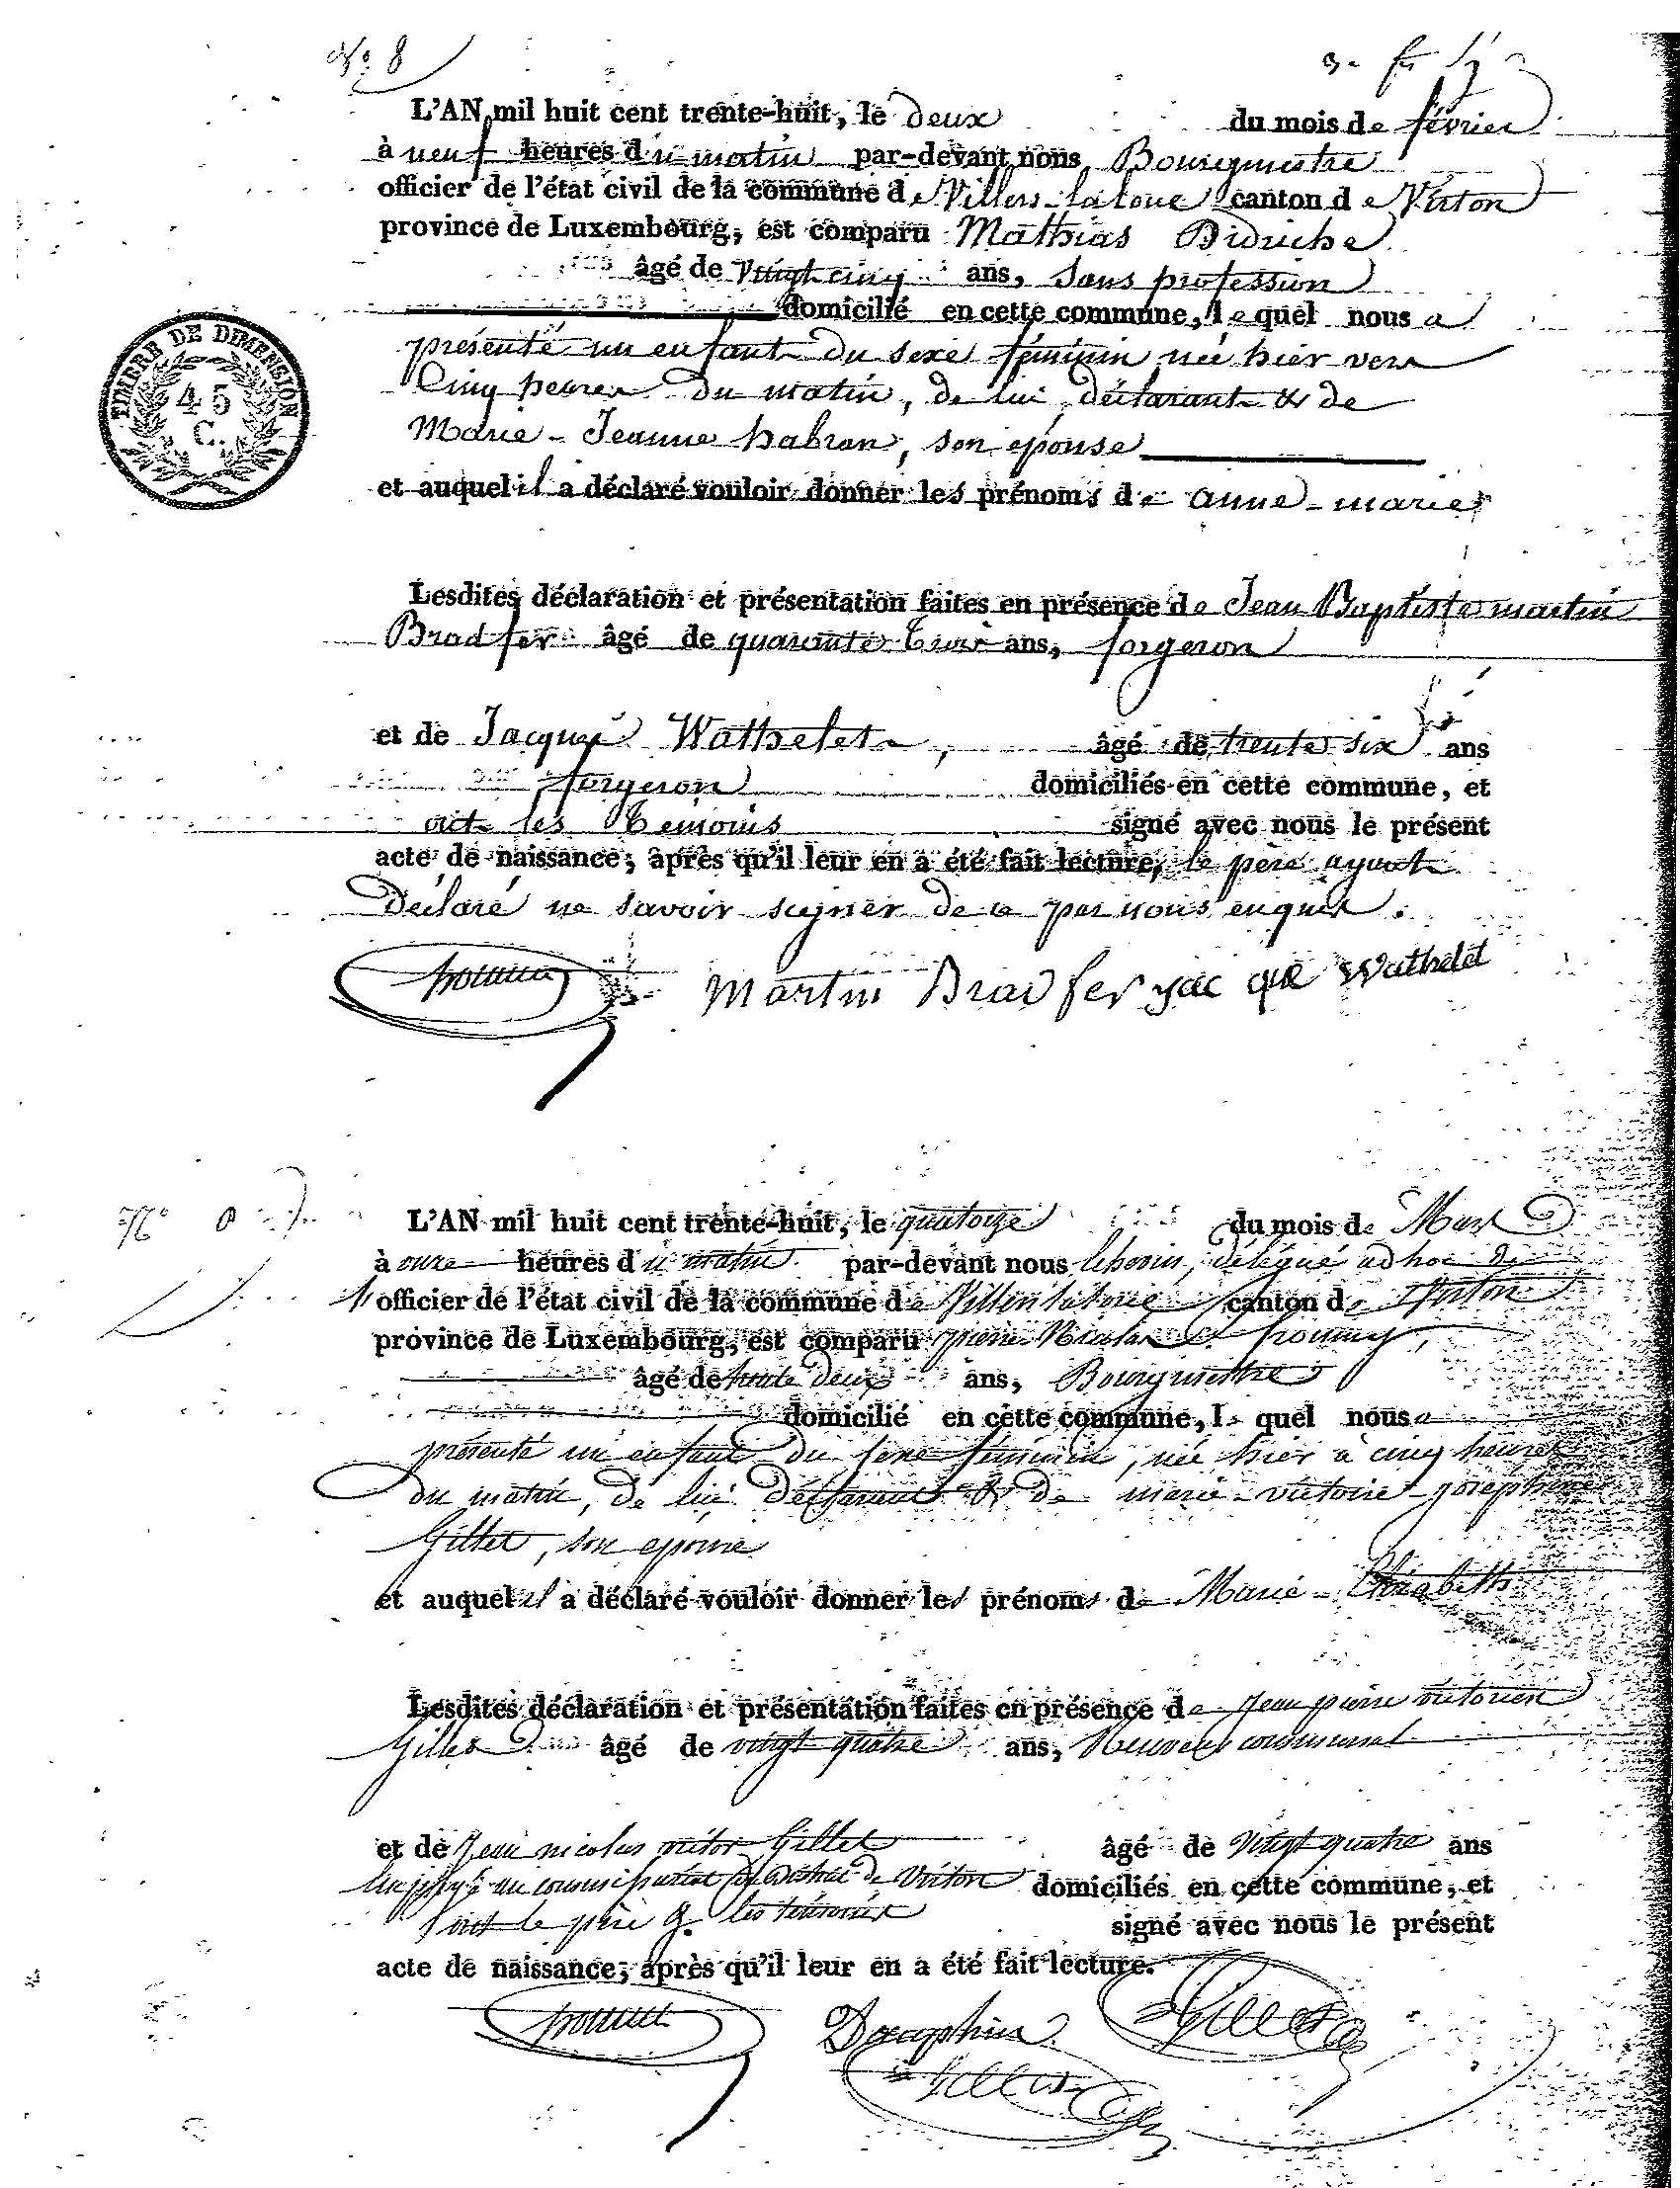 N° 8
L'AN mil huit cent trente-huit, le deux du mois de février
à neuf heures du matin par-devant nous Bourgmestre
officier de l'état civil de la commune de Villers-latoue canton de Virton
province de Luxembourg, est comparu Mathias Didriche
âgé de vingt cinq ans, sans profession
domicilié en cette commune, lequel nous a
présenté un enfant du sexe féminin née hier vers
Cinq heures du matin, de lui déclarant & de
Marie-Jeanne habran, son epouse
et auquel il a déclaré vouloir donner les prénoms de anne-marie
TIMBRE DE DIMENSION
45
C.
Lesdites déclaration et présentation faites en présence de Jean Baptiste martin
Bradfer âgé de quarante trois ans, forgeron
et de Jacques Wathelet, âgé de trente six ans
forgeron domiciliés en cette commune, et
ont les temoins signé avec nous le présent
acte de naissance, après qu'il leur en a été fait lecture, le père ayant
déclaré ne savoir signer de ce par nous enquis.
martin Bradfer jac que Wathelet
N°
L'AN mil huit cent trente-huit, le quatorze du mois de Mars
à onze heures du matin par-devant nous délégué ad hoc de
l'officier de l'état civil de la commune de Villers latoue canton de Virton
province de Luxembourg, est comparu pierre Nicolas
âgé de trente deux ans, Bourgmestre
domicilié en cette commune, lequel nous a
présenté un enfant du sexe féminin, née hier à cinq heures
du matin, de lui déclarant & de marie-victoire-joséphine
Gillet, son epouse
et auquel il a déclaré vouloir donner les prénoms de Marie-Elisabeth
Lesdites déclaration et présentation faites en présence de Jean pierre victorien
Gilles âgé de vingt quatre ans, Receveur communal
et de Jean nicolas victor Gillet âgé de vingt quatre ans
au commissariat du district de Virton domiciliés en cette commune, et
ont le père & les témoins signé avec nous le présent
acte de naissance, après qu'il leur en a été fait lecture.
Dauphin Gillet
Gilles